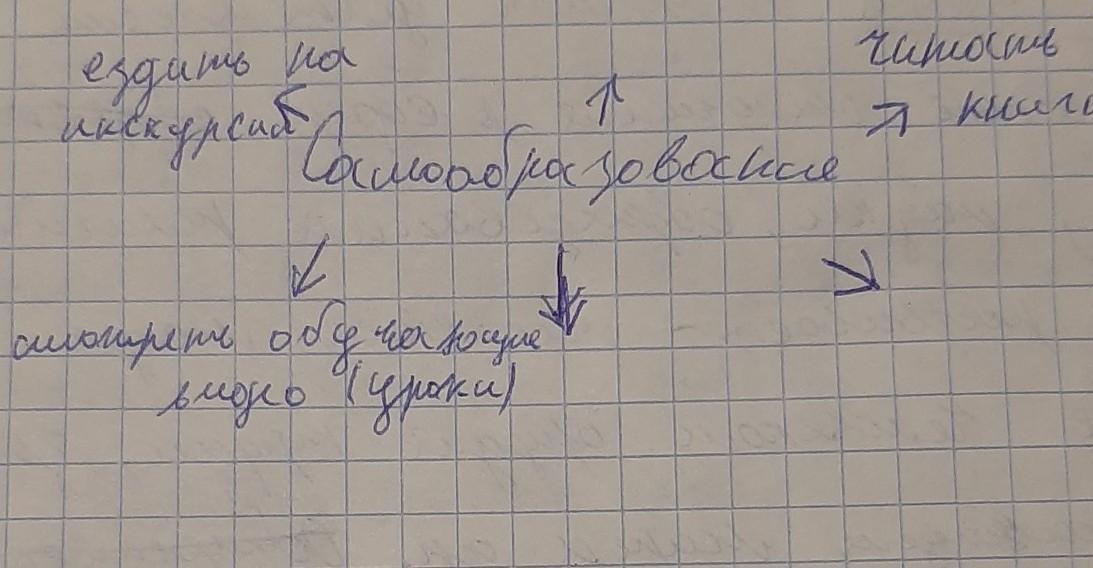 ездить на
экскурсии
читать
книги
Самообразование
смотреть обучающие
видео (уроки)